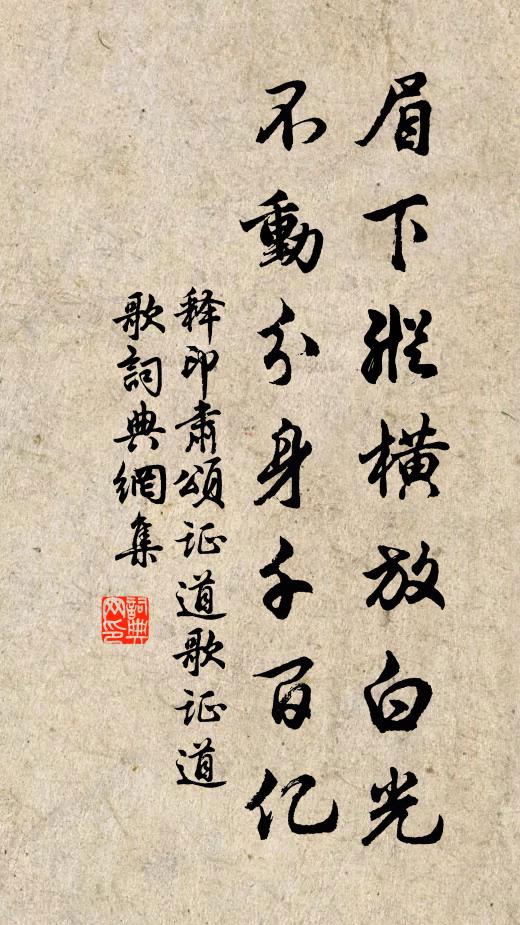 眉下縱橫放白光
不動分身千百亿
释印肃頌证道歌证道
歌詞典網集
詞典
网印